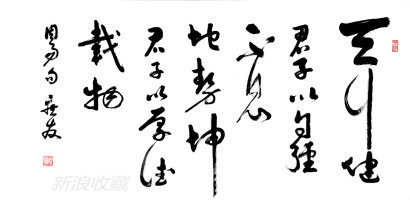 天行健
君子以自彊
不息
地势坤
君子以厚德
載物
周易句
新浪收藏